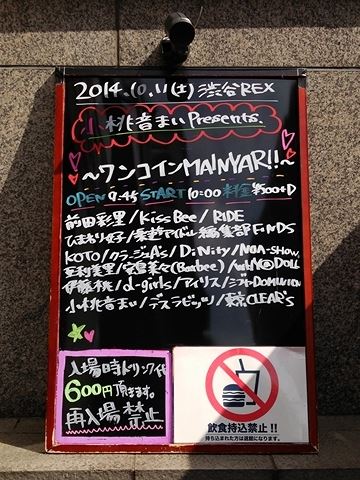 2014.10.11(土) 渋谷REX
小桃音まいPresents.
～ワンコインMAINYAR!!～
OPEN 9:45 START 10:00 料金 ¥500+D
前田彩里/KissBee/RIDE
ひまわり好子/ 編集部FiNDS
KOTO/クラージュA's/DiNity/NOA-SHOW.
(Bambee)/ DOLL
伊藤桃/d-girls/アイリス/ DOMINION
小桃音まい/デスラビッツ/東京CLEAR's
入場時ドリンク代
600円頂きます。
再入場禁止
飲食持込禁止!!
持ち込まれた方は退館になります。